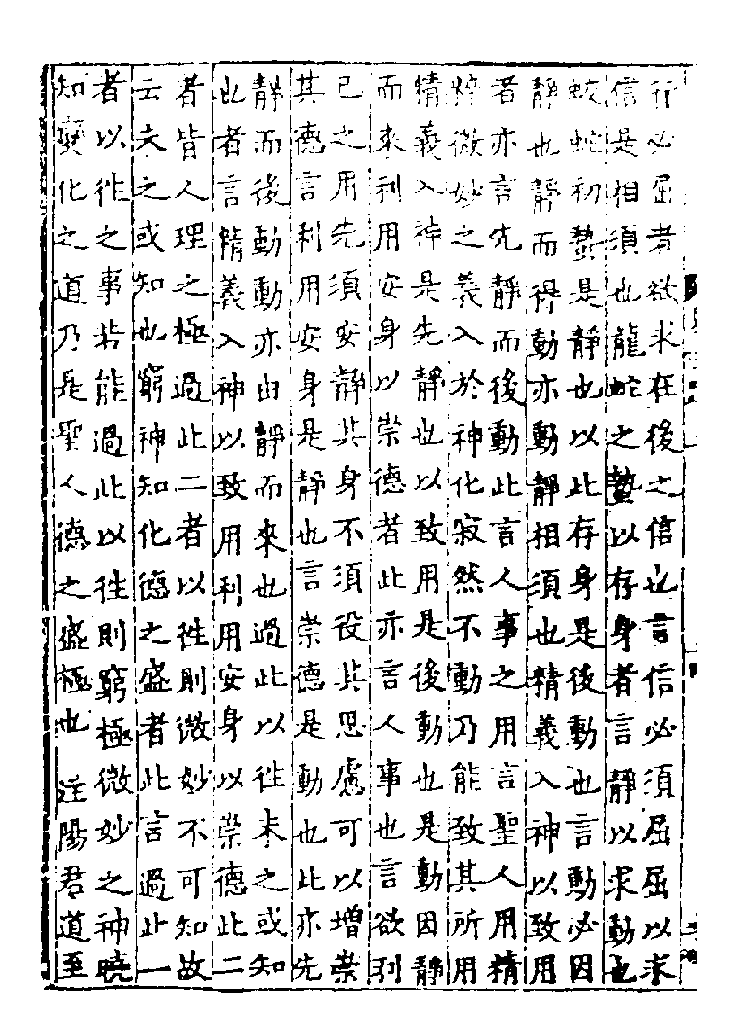 行必屈者欲求在後之信也言信必須屈屈以求
信是相須也龍蛇之蟄以存身者言靜以求動也
蛟蛇初蟄是靜也以此存身是後動也言動必因
靜也靜而得動亦動靜相須也精義入神以致用
者亦言先靜而後動此言人事之用言聖人用精
粹微妙之義入於神化寂然不動乃能致其所用
精義入神是先靜也以致用是後動也是動因靜
而來利用安身以崇德者此亦言人事也言欲利
已之用先須安靜其身不須役其思慮可以增崇
其德言利用安身是靜也言崇德是動也此亦先
靜而後動動亦由靜而來也過此以往未之或知
此者言精義入神以致用利用安身以崇德此二
者皆人理之極過此二者以往則微妙不可知故
云未之或知也窮神知化德之盛者此言過此一
者以往之事若能過此以往則窮極微妙之神曉
知變化之道乃是聖人德之盛極也 注陽君道至